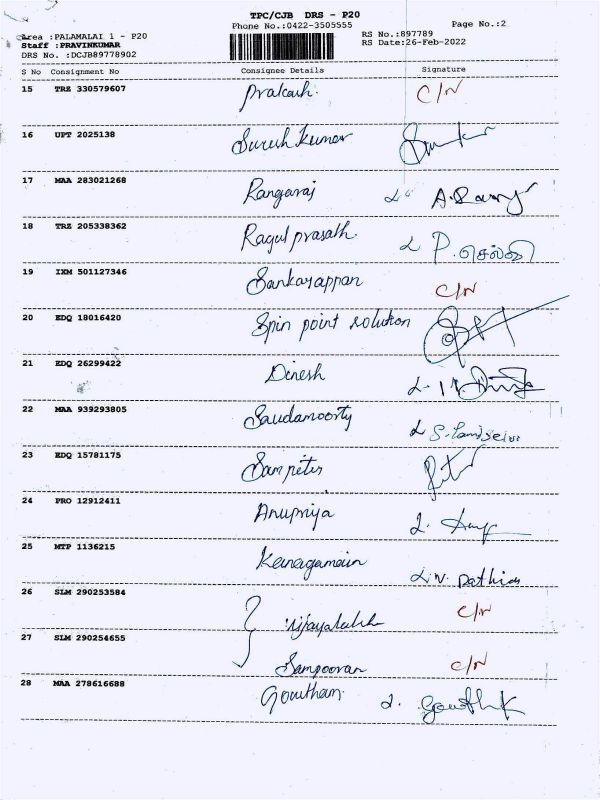 TPC/CJB DRS - P20
Phone No.:0422-3505555 Page No.:2
Area :PALAMALAI 1 - P20 RS No.:897789
Staff :PRAVINKUMAR RS Date:26-Feb-2022
DRS No. :DCJB89778902
S No Consignment No Consignee Details Signature
15 TRZ 330579607 Prakash. C/N
16 UPT 2025138 Suresh kumar
17 MAA 283021268 Rangaraj
18 TRZ 205338362 Ragul prasath. P. செல்வி
19 IXM 501127346 Sankarappan C/N
20 EDQ 18016420 Spin point solution
21 EDQ 26299422 Dinesh
22 MAA 939293805
23 EDQ 15781175 Sam peter
24 PRO 12912411 Anupriya
25 MTP 1136215
26 SLM 290253584 C/N
27 SLM 290254655 C/N
28 MAA 278616688 Gowtham.